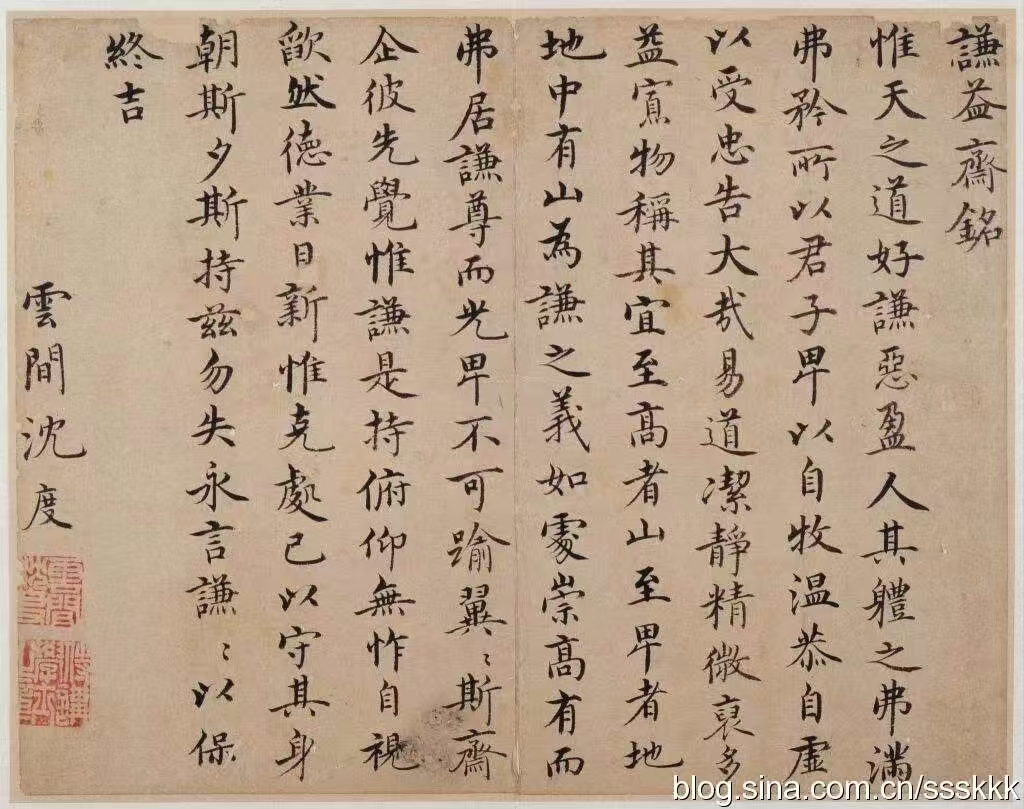 謙益齋銘
惟天之道好謙惡盈人其軆之弗滿
弗矜所以君子卑以自牧温恭自虛
以受忠告大哉易道潔靜精微裒多
益寡物稱其宜至高者山至卑者地
地中有山為謙之義如處崇高有而
弗居謙尊而光卑不可踰翼〻斯齋
企彼先覺惟謙是持俯仰無怍自視
歉然德業日新惟克處己以守其身
朝斯夕斯持茲勿失永言謙〻以保
終吉
雲間沈度
blog.sina.com.cn/ssskkk